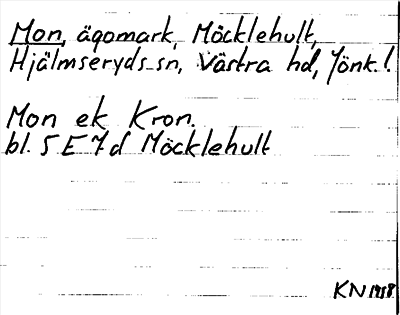 Mon, ägomark, Möcklehult,
Hjälmseryds sn, Västra hd, Jönk. l.
Mon ek Kron.
bl. 5 E 7 d Möcklehult
KN 1958.